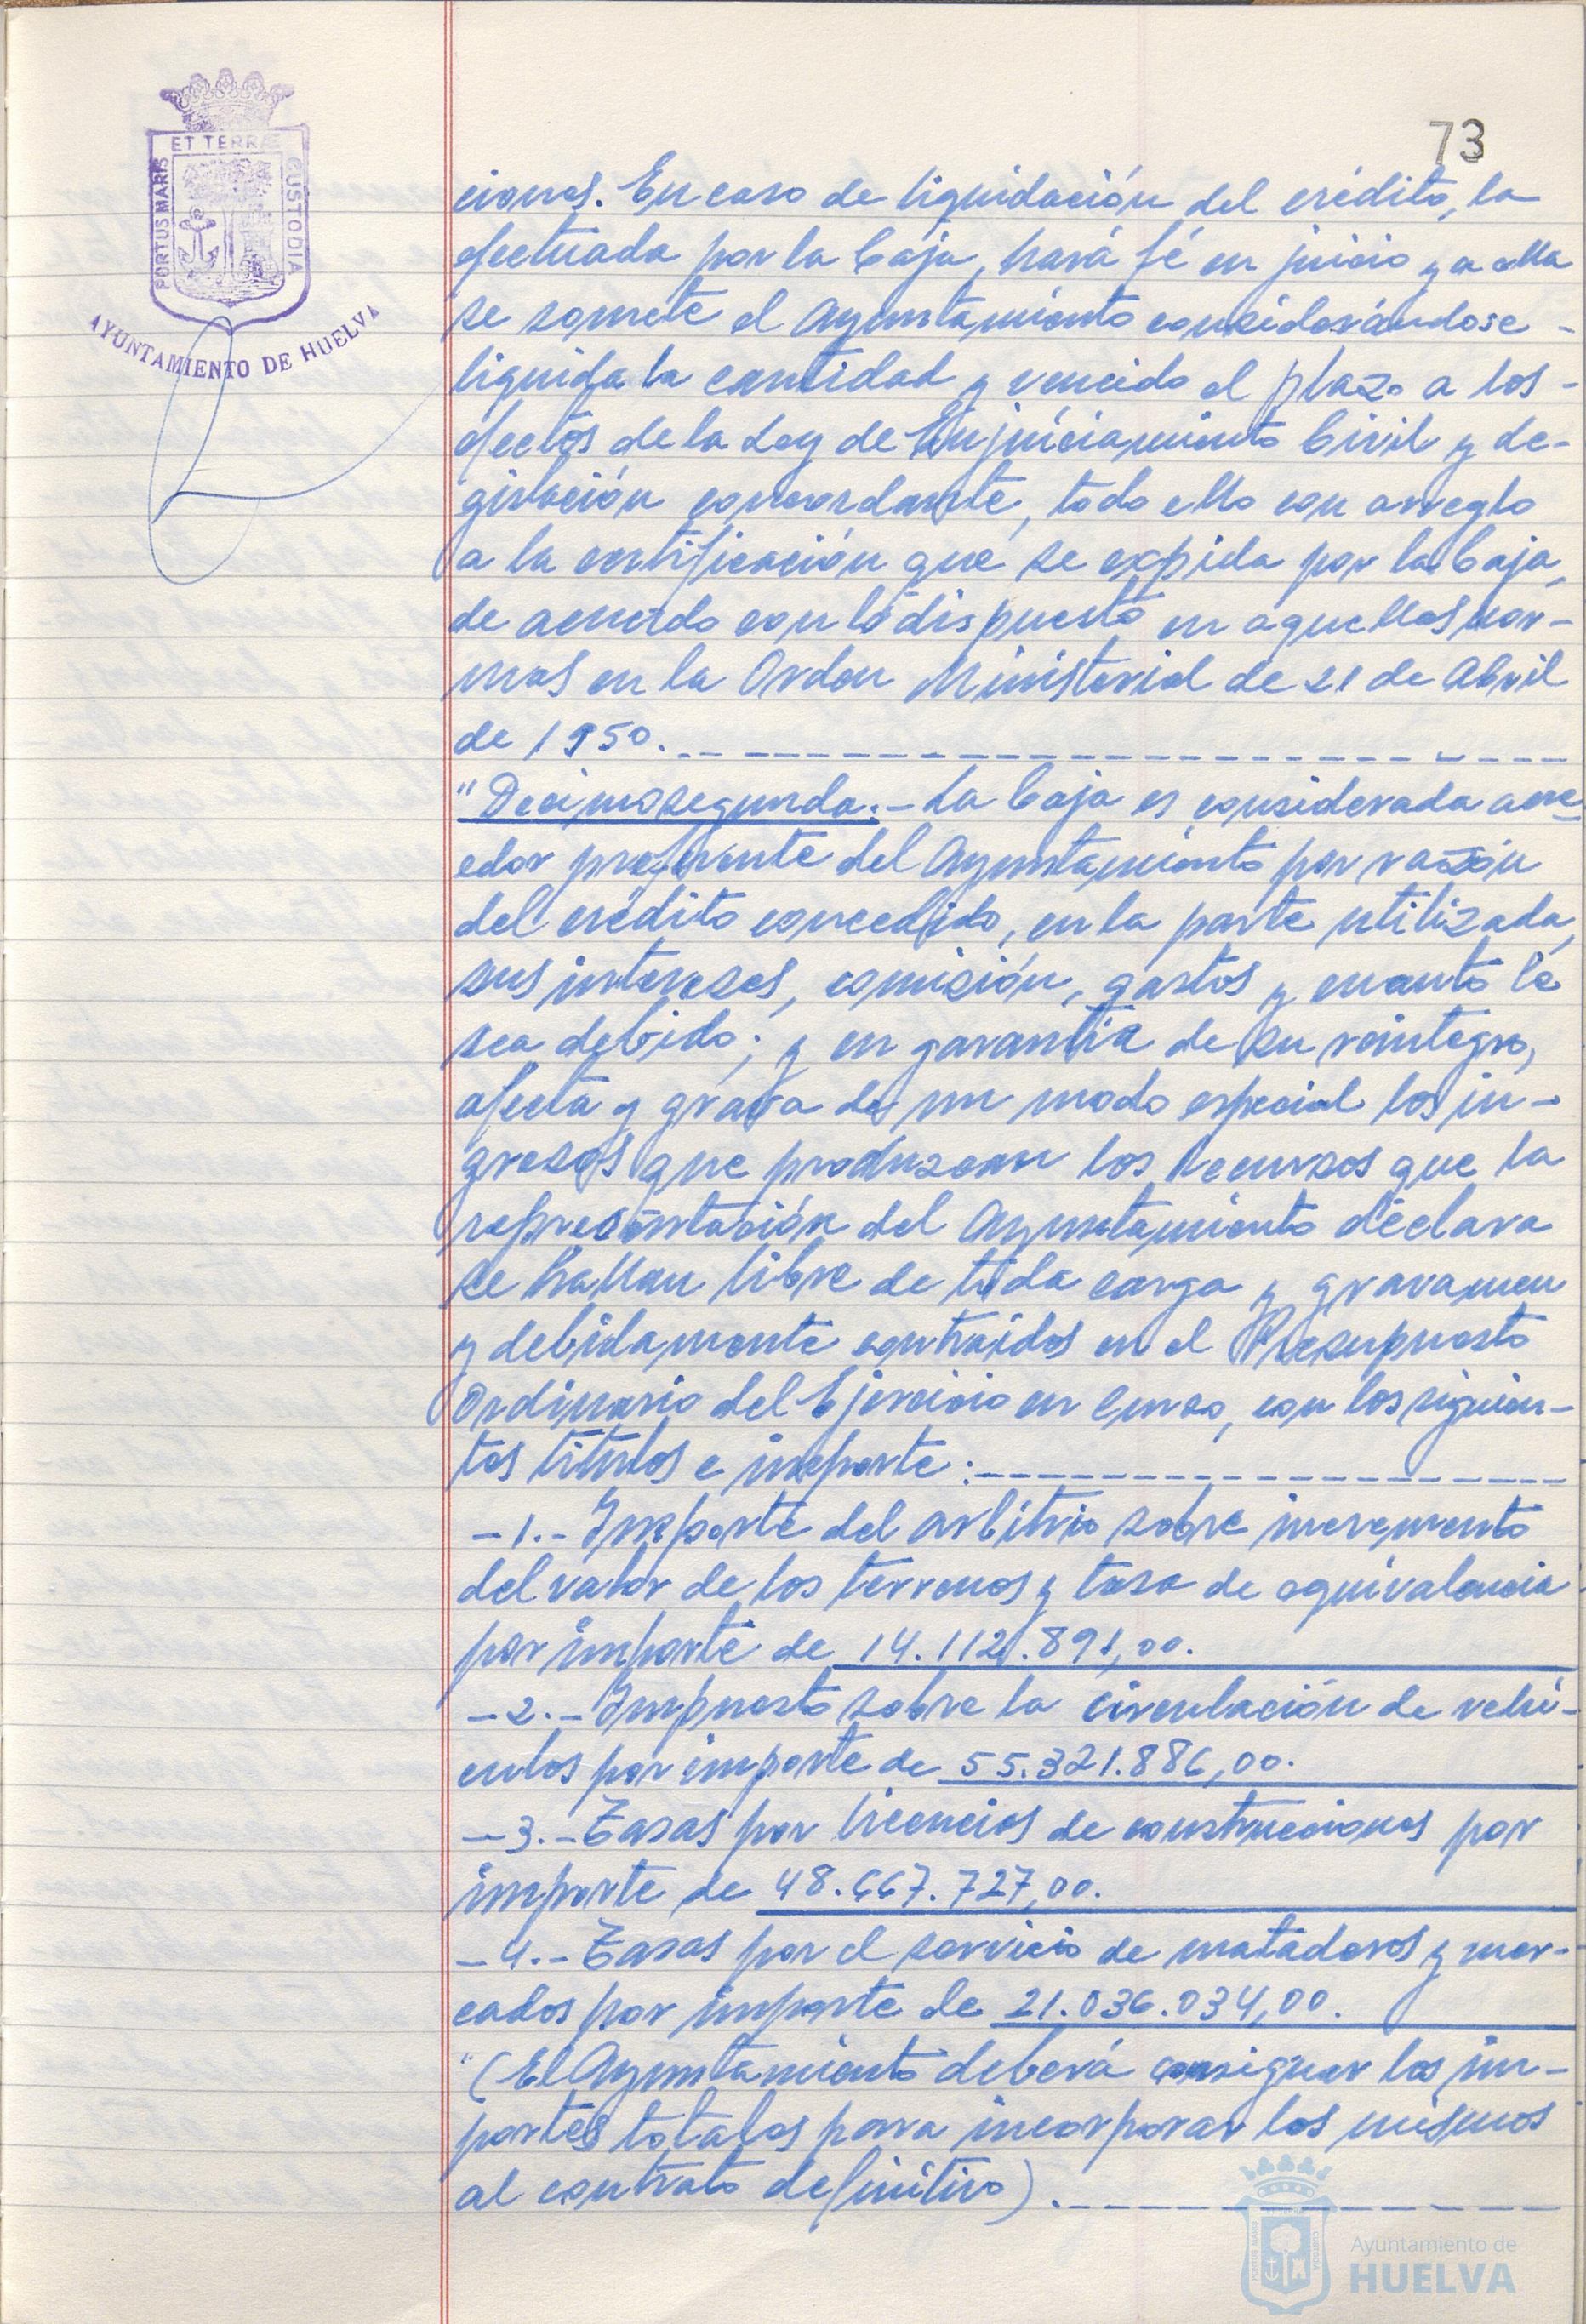 73
ET TERRÆ
PORTUS MARIS
CUSTODIA
AYUNTAMIENTO DE HUELVA
ciones. En caso de liquidación del crédito, la
efectuada por la Caja, hará fé en juicio y a ella
se somete el Ayuntamiento considerándose -
líquida la cantidad y vencido el plazo a los -
efectos de la Ley de Enjuiciamiento Civil y Le-
gislación concordante, todo ello con arreglo
a la certificación que se expida por la Caja,
de acuerdo con lo dispuesto en aquellas nor-
mas en la Orden Ministerial de 21 de Abril
de 1950.
"Decimosegunda.- La Caja es considerada acre-
edor preferente del Ayuntamiento por razón
del crédito concedido, en la parte utilizada,
sus intereses, comisión, gastos y cuanto le
sea debido; y en garantía de su reintegro,
afecta y grava de un modo especial los in-
gresos que produzcan los recursos que la
representación del Ayuntamiento declara
se hallan libre de toda carga y gravamen
y debidamente contraidos en el Presupuesto
Ordinario del Ejercicio en Curso, con los siguien-
tes títulos e importe:
-1.- Importe del arbitrio sobre incremento
del valor de los terrenos y tasa de equivalencia
por importe de 14.112.891,00.
-2.- Impuesto sobre la circulación de vehí-
culos por importe de 55.321.886,00.
-3.- Tasas por licencias de construcciones por
importe de 48.667.727,00.
-4.- Tasas por el servicio de mataderos y mer-
cados por importe de 21.036.034,00.
"(El Ayuntamiento deberá consignar los im-
portes totales para incorporar los mismos
al contrato definitivo).
Ayuntamiento de
HUELVA